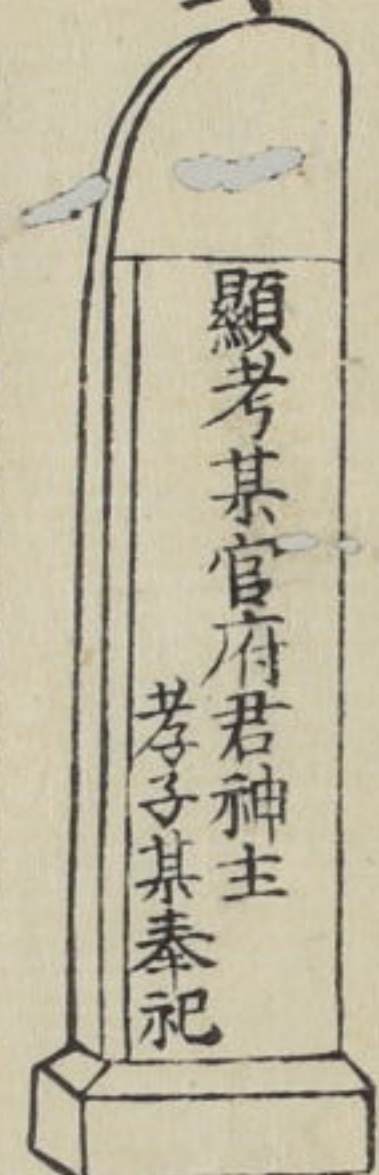 顯考某官府君神主
孝子某奉祀